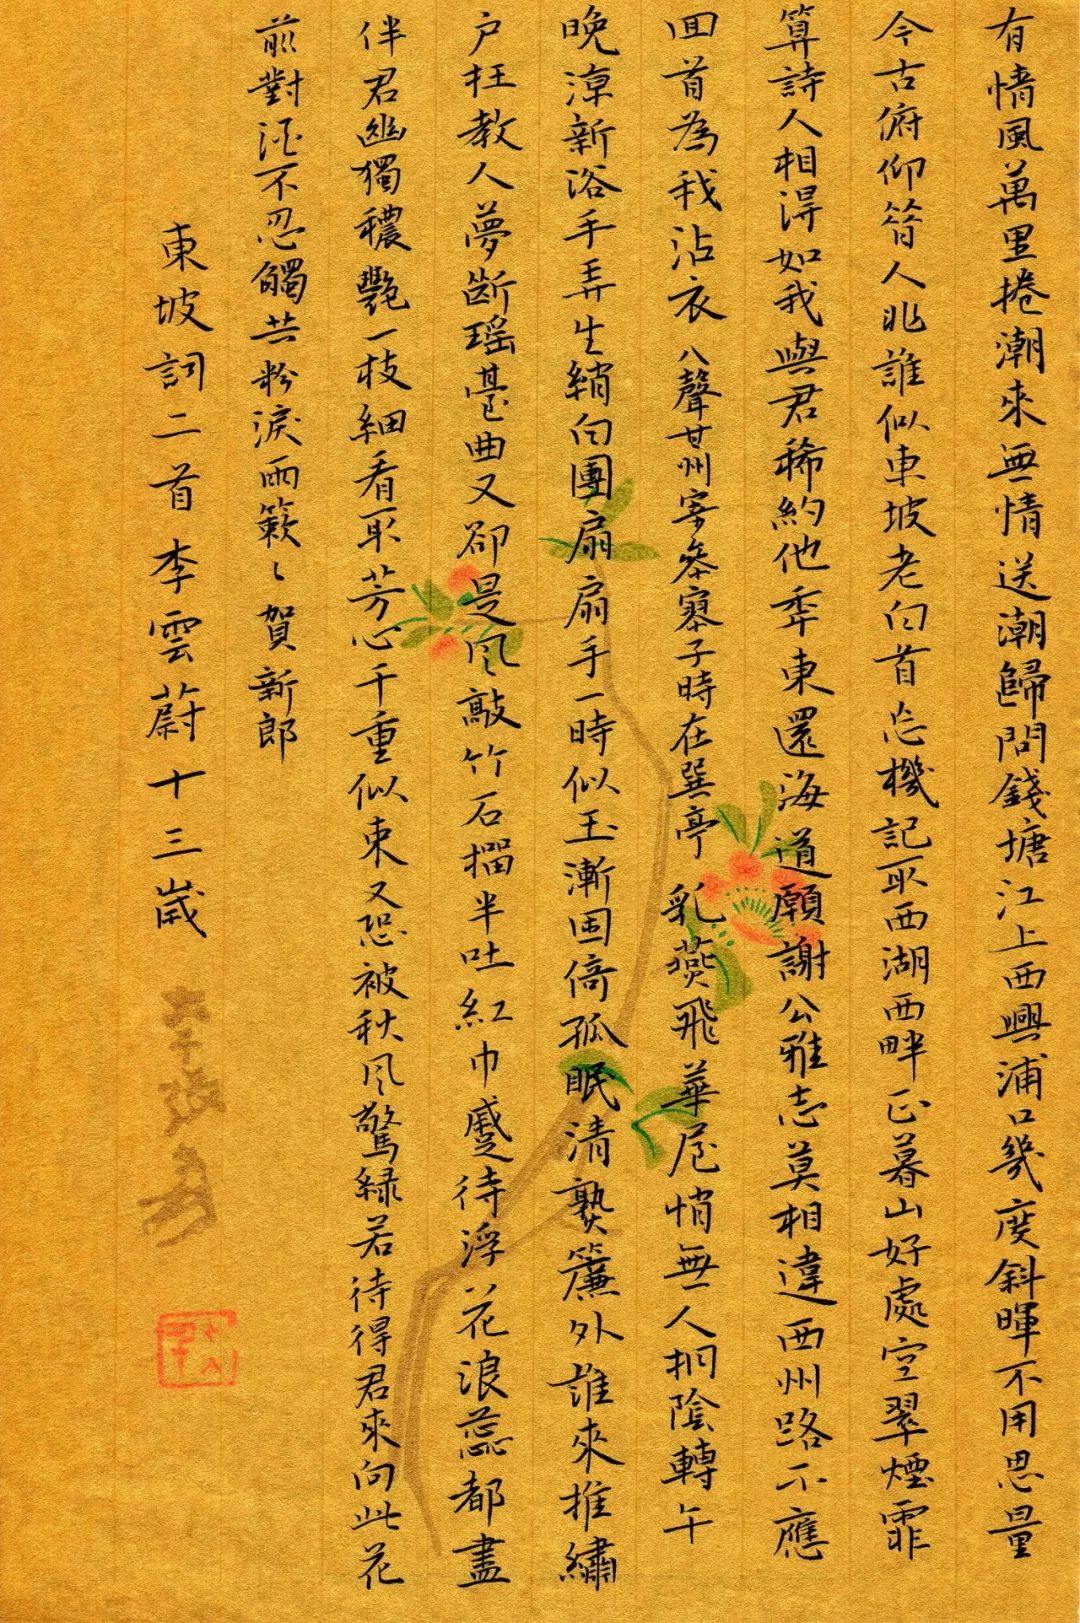 有情風萬里捲潮來無情送潮歸問錢塘江上西興浦口幾度斜暉不用思量
今古俯仰昔人非誰似東坡老白首忘機記取西湖西畔正暮山好處空翠煙霏
算詩人相得如我與君稀約他年東還海道願謝公雅志莫相違西州路不應
回首為我沾衣 八聲甘州寄參寥子時在巽亭 乳燕飛華屋悄無人桐陰轉午
晚涼新浴手弄生綃白團扇扇手一時似玉漸困倚孤眠清熟簾外誰來推繡
户枉教人夢斷瑶臺曲又卻是風敲竹石榴半吐紅巾蹙待浮花浪蕊都盡
伴君幽獨穠艷一枝細看取芳心千重似束又恐被秋風驚綠若待得君來向此花
前對酒不忍觸共粉淚兩簌〻 賀新郎
東坡詞二首 李雲蔚十三歲